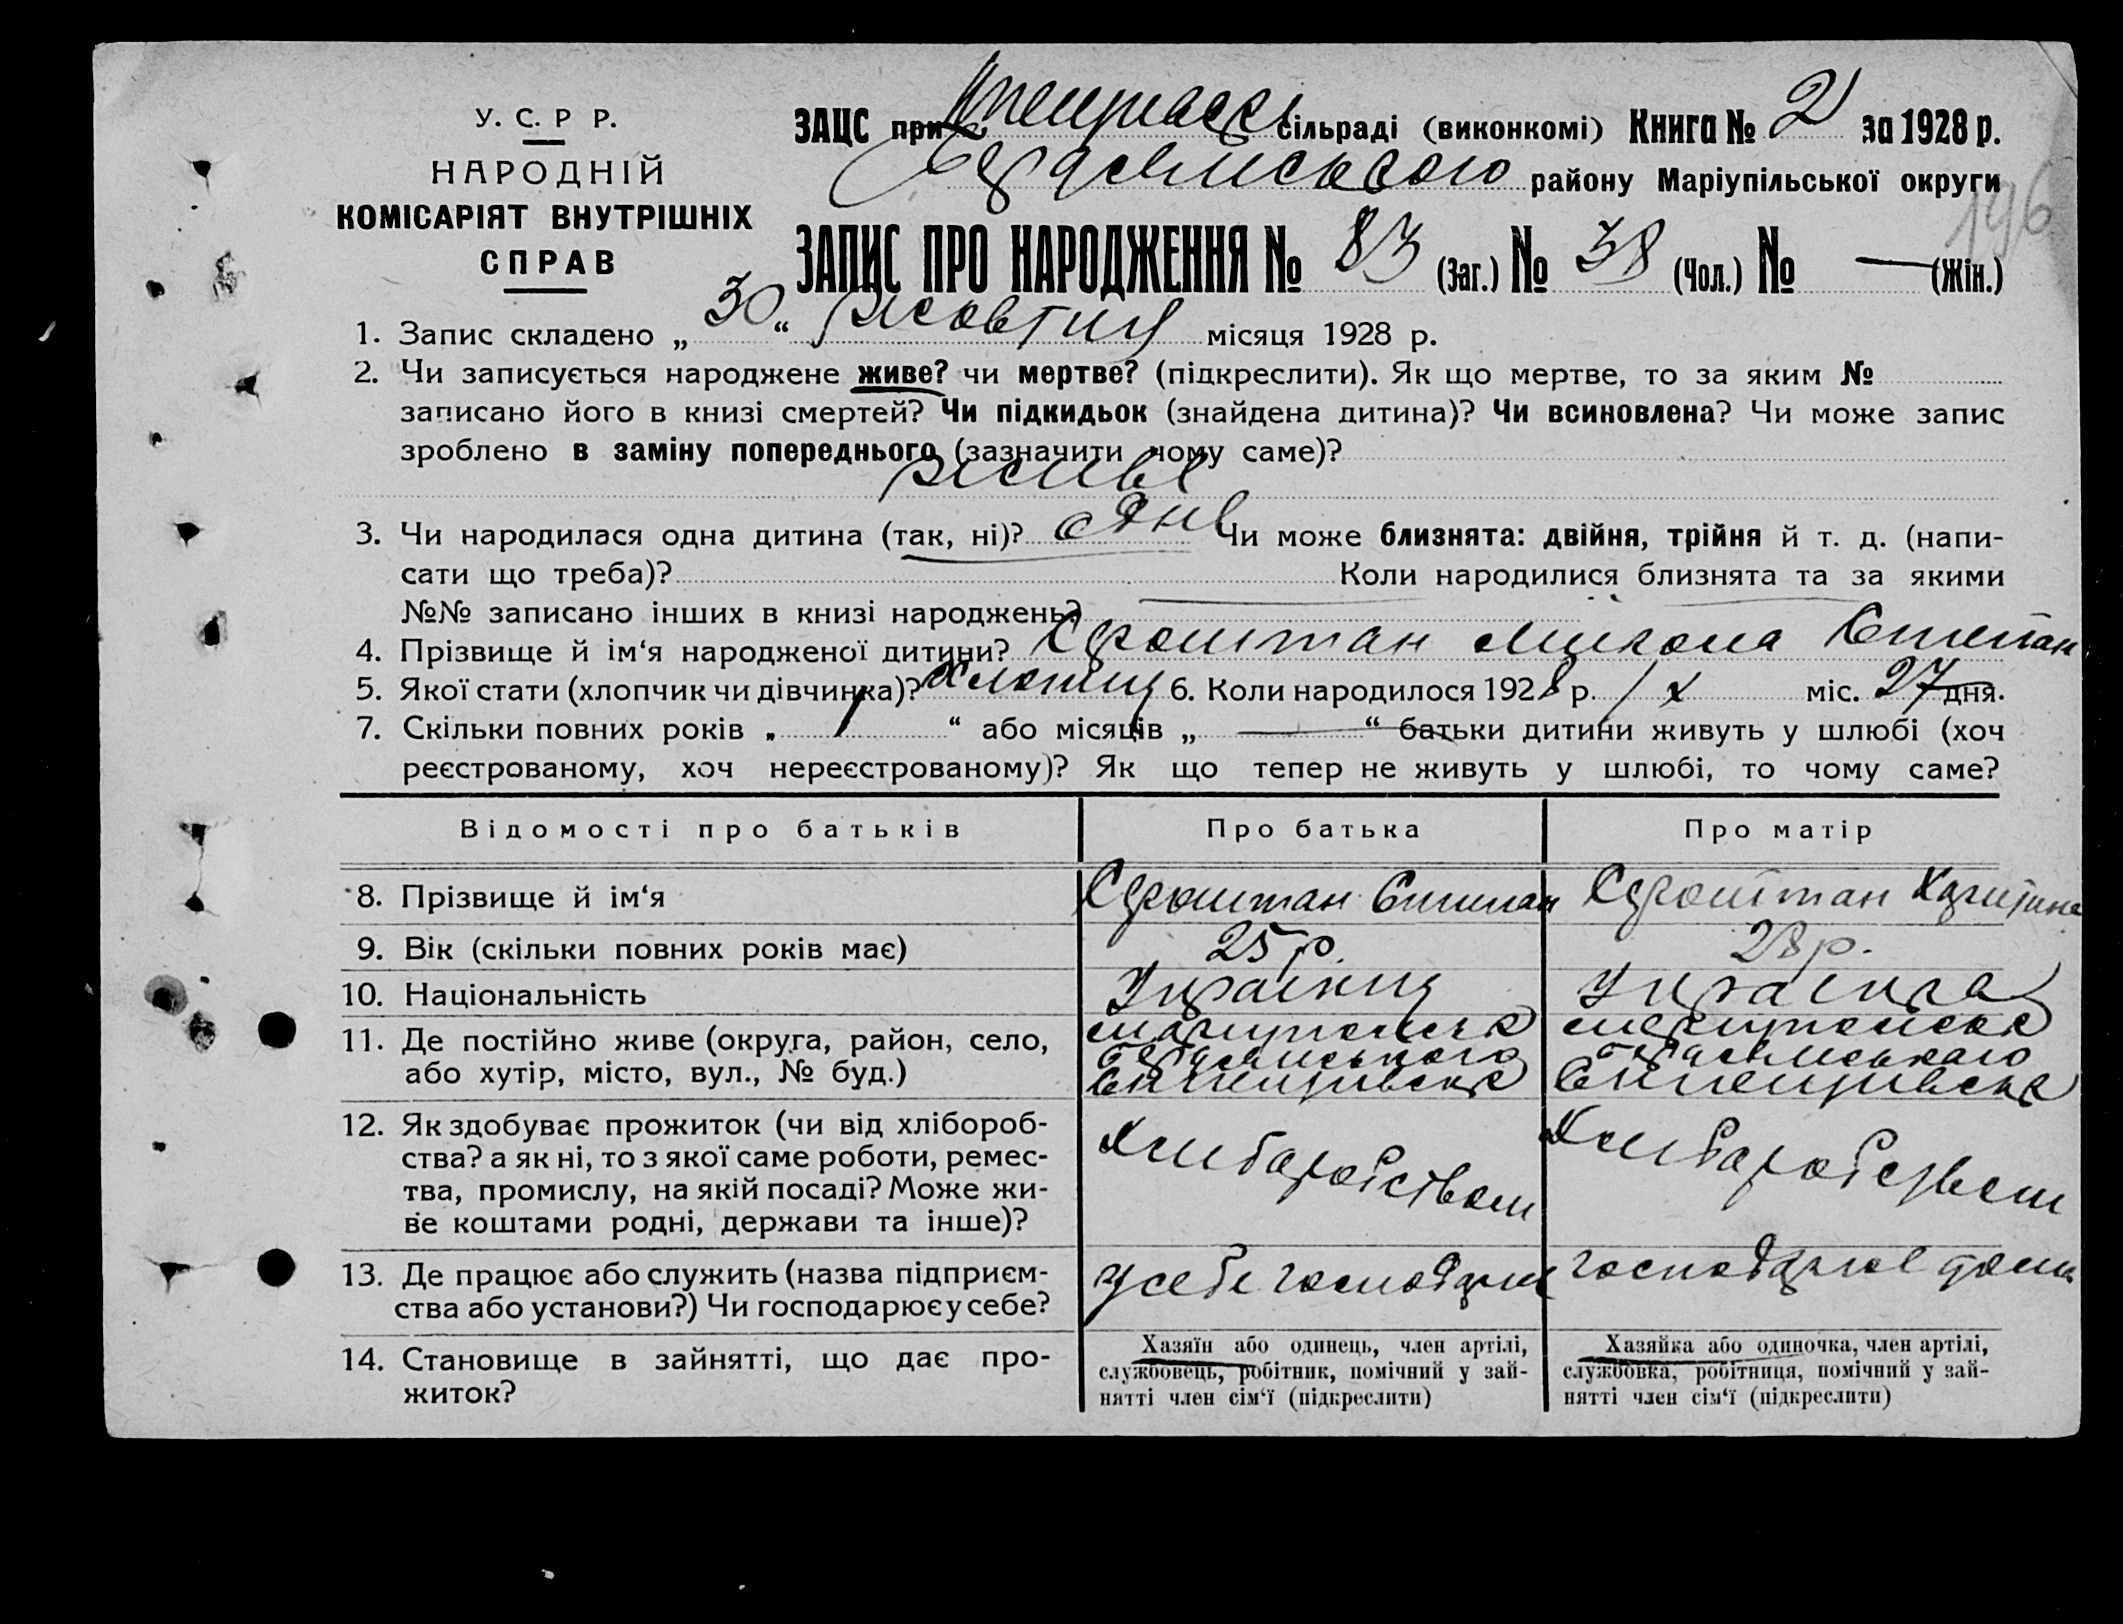 У. С. Р Р.
НАРОДНІЙ
КОМІСАРІЯТ ВНУТРІШНІХ
СПРАВ
ЗАЦС при сільраді (виконкомі) Книга № 2 за 1928 р.
району Маріупільської округи
196
ЗАПИС ПРО НАРОДЖЕННЯ № 83 (Заг.) № 38 (Чол.) № — (Жін.)
1. Запис складено „ 30 “ жовтня місяця 1928 р.
2. Чи записується народжене живе? чи мертве? (підкреслити). Як що мертве, то за яким №
записано його в книзі смертей? Чи підкидьок (знайдена дитина)? Чи всиновлена? Чи може запис
зроблено в заміну попереднього (зазначити чому саме)?
живе
3. Чи народилася одна дитина (так, ні)? одне Чи може близнята: двійня, трійня й т. д. (напи-
сати що треба)? Коли народилися близнята та за якими
№№ записано інших в книзі народжень?
4. Прізвище й ім‘я народженої дитини? Микола Степан
5. Якої стати (хлопчик чи дівчинка)? 6. Коли народилося 1928 р. / X міс. 27 дня.
7. Скільки повних років „ 1 “ або місяців „ — “ батьки дитини живуть у шлюбі (хоч
реєстрованому, хоч нереєстрованому)? Як що тепер не живуть у шлюбі, то чому саме?
Відомості про батьків Про батька Про матір
8. Прізвище й ім‘я
9. Вік (скільки повних років має) 25 р. 28 р.
10. Національність
11. Де постійно живе (округа, район, село,
або хутір, місто, вул., № буд.)
12. Як здобуває прожиток (чи від хлібороб-
ства? а як ні, то з якої саме роботи, ремес-
тва, промислу, на якій посаді? Може жи-
ве коштами родні, держави та інше)?
13. Де працює або служить (назва підприєм-
ства або установи?) Чи господарює у себе?
у себе
14. Становище в зайнятті, що дає про-
житок?
Хазяїн або одинець, член артілі,
службовець, робітник, помічний у зай-
нятті член сім‘ї (підкреслити)
Хазяйка або одиночка, член артілі,
службовка, робітниця, помічний у зай-
нятті член сім‘ї (підкреслити)